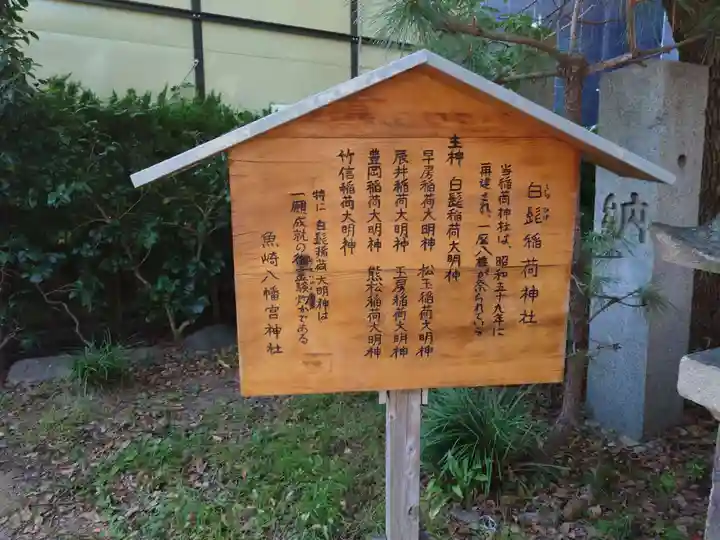 白髭稲荷神社
しらひげ
当稲荷神社は、昭和五十九年に
再建され、一屋八雄が祭られている
主神 白髭稲荷大明神
早房稲荷大明神 松玉稲荷大明神
辰井稲荷大明神 玉房稲荷大明神
豊岡稲荷大明神 熊松稲荷大明神
竹信稲荷大明神
特に 白髭稲荷大明神は
一願成就の御霊験あらたかである
魚崎八幡宮神社
納